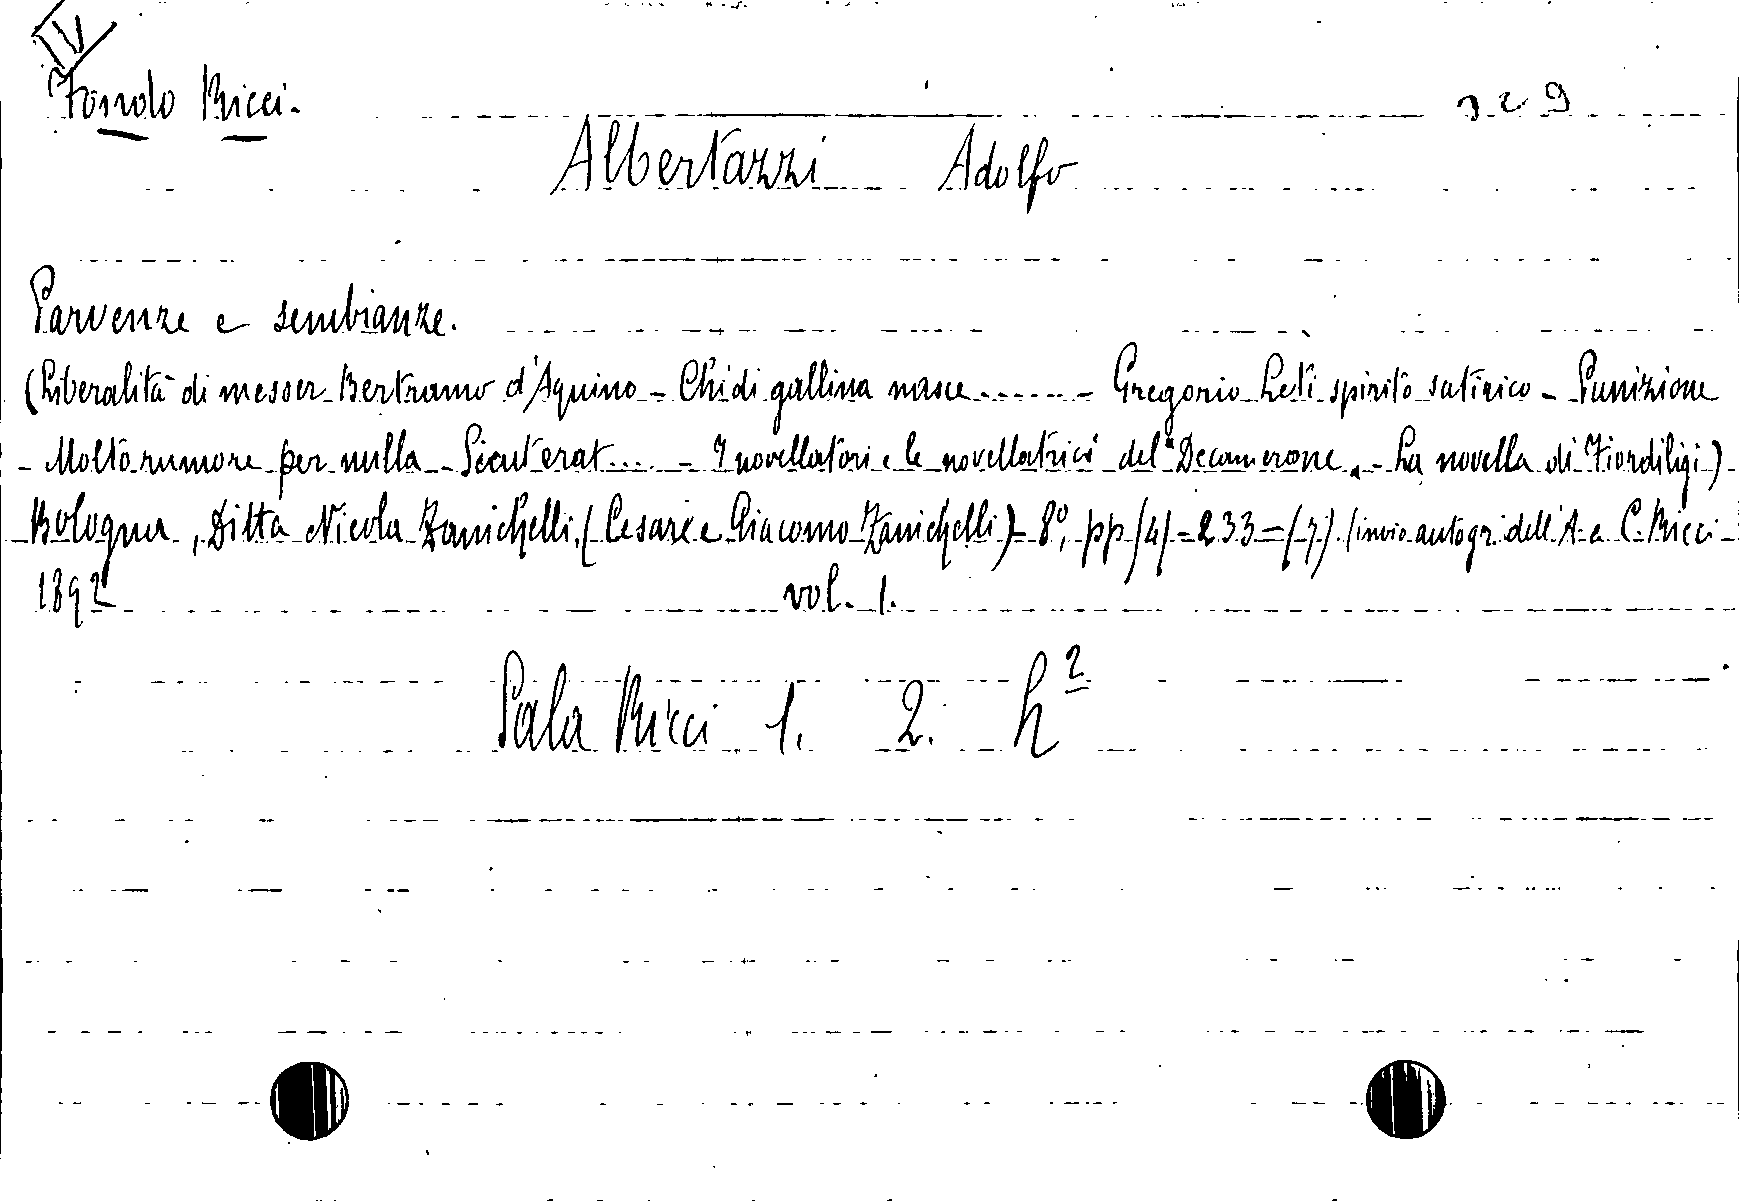 IV
Fondo Ricci.
129
Albertazzi Adolfo
Parvenze e sembianze.
(Liberalità di messer Bertramo d'Aquino - Chi di gallina nasce ...... - Gregorio Leti spirito satirico - Punizione
- Molto rumore per nulla - Sicut erat .... - I novellatori e le novellatrici del "Decamerone" - La novella di Fiordiligi)
Bologna, Ditta Nicola Zanichelli, (Cesare e Giacomo Zanichelli) - 8°, pp (4) - 233 = (7). (invio autogr. dell'A. a C. Ricci
1892 vol. 1.
Sala Ricci 1. 2. h²